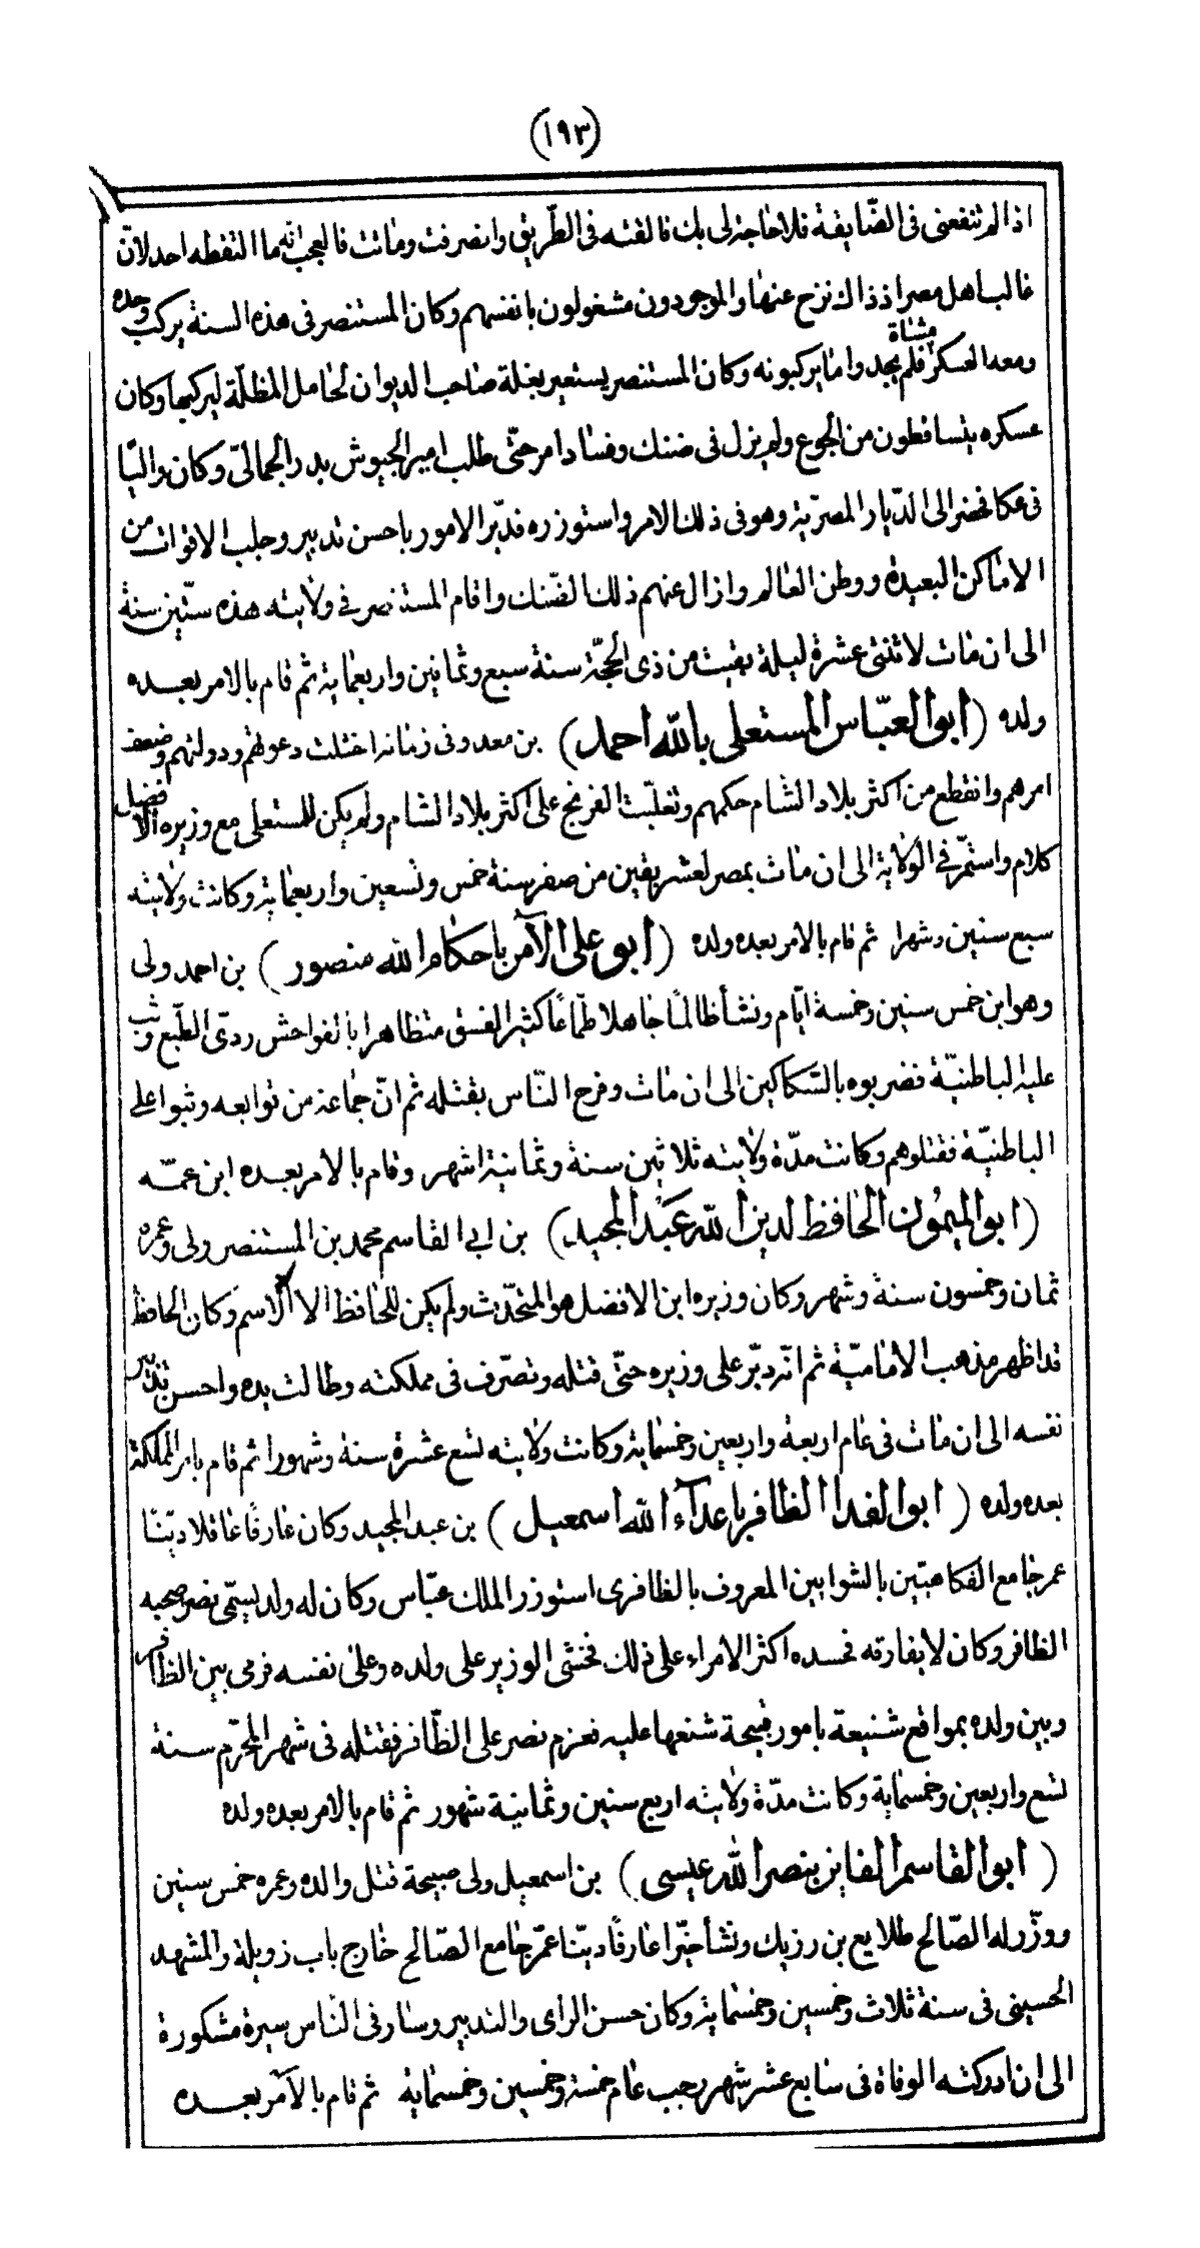 (١٩٣)
اذا لم تنفعنى فى الضّايقة فلا حاجة لى بك فالقته فى الطّريق وانصرفت وماتت فالعجب انّه ما التقطه احد لانّ
غالب اهل مصر اذ ذاك نزح عنها والموجودون مشغولون بانفسهم وكان المستنصر فى هذه السنة يركب وحده
ومعه العسكر مشاة فلم يجدوا ما يركبونه وكان المستنصر يستعير بغلة صاحب الديوان لحامل المظلّة ليركبها وكان
عسكره يتساقطون من الجوع ولم يزل فى ضنك وفساد امر حتّى طلب امير الجيوش بدر الجمالىّ وكان واليًا
فى عكا فحضر الى الدّيار المصريّة وهو فى ذلك الامر واستوزره فدبّر الامور باحسن تدبير وجلب الاقوات من
الاماكن البعيدة ووطن العالم وازال عنهم ذلك الضّنك واقام المستنصر فى ولايته هذه ستّين سنة
الى ان مات لاثنتى عشرة ليلة بقيت من ذى الحجّة سنة سبع وثمانين واربعماية ثم قام بالامر بعده
ولده (ابو العبّاس المستعلى بالله احمد) بن معد وفى زمانه اختلت دعوتهم ودولتهم وضعف
امرهم وانقطع من اكثر بلاد الشام حكمهم وتغلّبت الفرنج على اكثر بلاد الشام ولم يكن للمستعلى مع وزيره الافضل
كلام واستمرّ فى الولاية الى ان مات بمصر لعشر بقين من صفر سنة خمس وتسعين واربعماية وكانت ولايته
سبع سنين وشهرا ثم قام بالامر بعده ولده (ابو على الآمر باحكام الله منصور) بن احمد ولى
وهو ابن خمس سنين وخمسة ايّام ونشأ ظالمًا جاهلا طمّاعًا كثير الفسق متظاهرا بالفواحش ردىّ الطّبع وثب
عليه الباطنيّة فضربوه بالسّكاكين الى ان مات وفرح النّاس بقتله ثم انّ جماعة من توابعه وثبوا على
الباطنيّة فقتلوهم وكانت مدّة ولايته ثلاثين سنة وثمانية اشهر وقام بالامر بعده ابن عمّه
(ابو الميمون الحافظ لدين الله عبد المجيد) بن ابى القاسم محمد بن المستنصر ولى وعمره
ثمان وخمسون سنة وشهر وكان وزيره ابن الافضل هو المتحدّث ولم يكن للحافظ الا الاسم وكان الحافظ
قد اظهر مذهب الاماميّة ثم انّه دبّر على وزيره حتّى قتله وتصرّف فى مملكته وطالت يده واحسن تدبير
نفسه الى ان مات فى عام اربعة واربعين وخمسماية وكانت ولايته تسع عشرة سنة وشهورا ثم قام بامر المملكة
بعده ولده (ابو الفدا الظافر باعدآء الله اسمعيل) بن عبد المجيد وكان عارفًا عاقلا ديّنًا
عمر جامع الفكاهيّين بالشوابين المعروف بالظافرى استوزر الملك عبّاس وكان له ولد يسمّى نصر صحبه
الظافر وكان لا يفارقه فحسده اكثر الامراء على ذلك فخشى الوزير على ولده وعلى نفسه فرمى بين الظافر
وبين ولده بمواقع شنيعة بامور قبيحة شنعها عليه فعزم نصر على الظّافر فقتله فى شهر المحرّم سنة
تسع واربعين وخمسماية وكانت مدّة ولايته اربع سنين وثمانية شهور ثم قام بالامر بعده ولده
(ابو القاسم الفايز بنصر الله عيسى) بن اسمعيل ولى صبيحة قتل والده وعمره خمس سنين
ووزّر له الصّالح طلايع بن رزيك ونشأ خيّرا عارفًا ديّنًا عمّر جامع الصّالح خارج باب زويلة والمشهد
الحسينى فى سنة ثلاث وخمسين وخمسماية وكان حسن الراى والتدبير وسار فى النّاس سيرة مشكورة
الى ان ادركته الوفاة فى سابع عشر شهر رجب عام خمسة وخمسين وخمسماية ثم قام بالآمر بعده